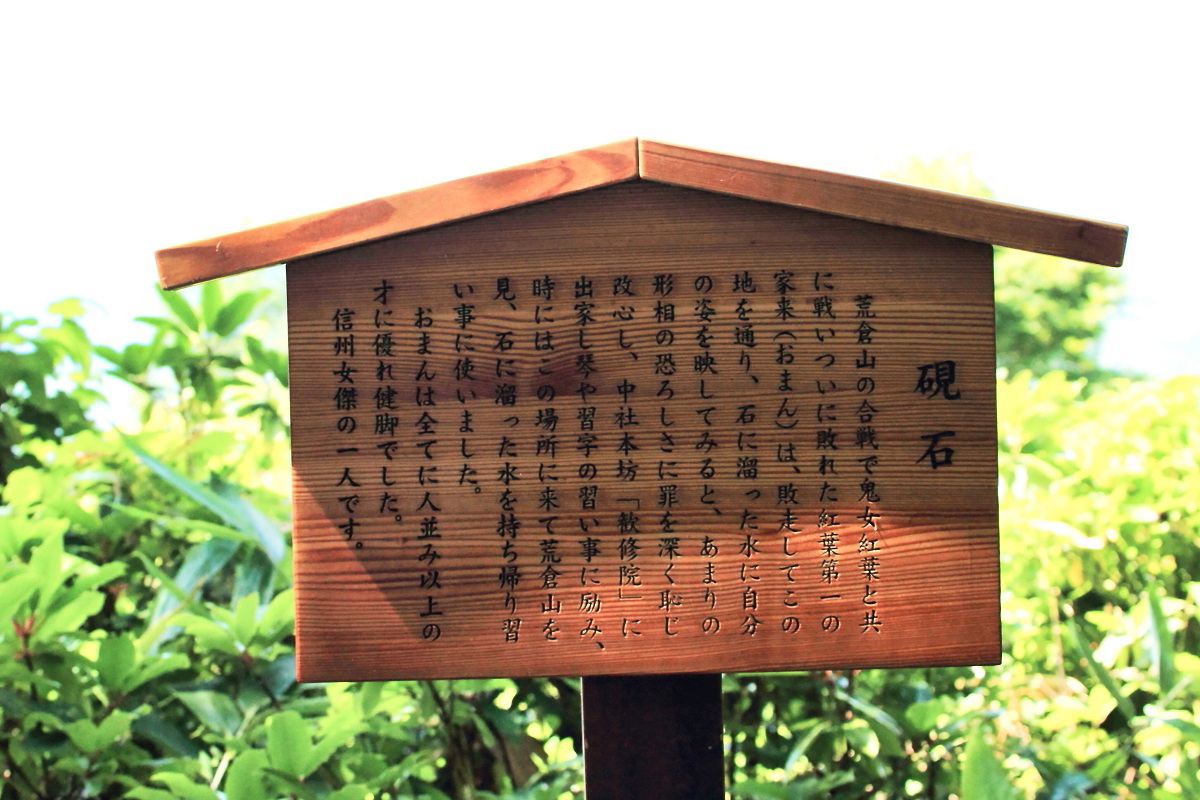 硯石
荒倉山の合戦で鬼女紅葉と共
に戦いついに敗れた紅葉第一の
家来（おまん）は、敗走してこの
地を通り、石に溜った水に自分
の姿を映してみると、あまりの
形相の恐ろしさに罪を深く恥じ
改心し、中社本坊「歓修院」に
出家し琴や習字の習い事に励み、
時にはこの場所に来て荒倉山を
見、石に溜った水を持ち帰り習
い事に使いました。
おまんは全てに人並み以上の
才に優れ健脚でした。
信州女傑の一人です。